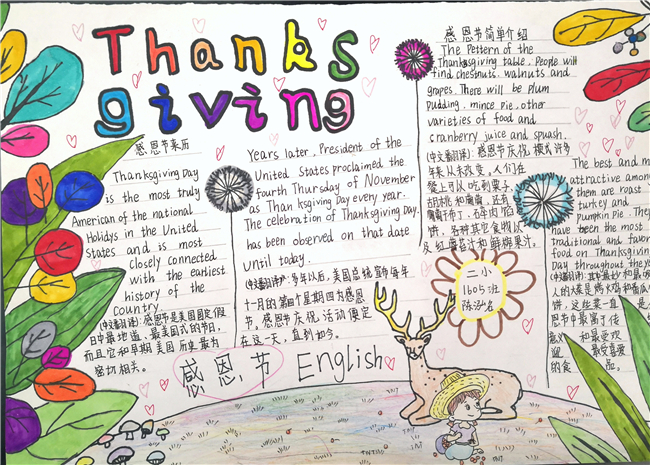 Thanks
giving
感恩节来历
Thanksgiving Day
is the most truly
American of the national
Holidys in the United
States and is most
closely connected
with the earliest
history of the
country.
(中文翻译)感恩节是美国国定假
日中最地道、最美国式的节日,
而且它和早期美国历史最为
密切相关。
Years later, President of the
United States proclaimed the
fourth Thursday of November
as Thanksgiving Day every year.
The celebration of Thanksgiving Day
has been observed on that date
until today.
(中文翻译)多年以后,美国总统宣布每年
十一月的第四个星期四为感恩
节。感恩节庆祝活动便定
在这一天,直到如今。
感恩节简单介绍
The Pettern of the
Thanksgiving table. People will
find chestnuts, walnuts and
grapes. There will be plum
pudding, mince pie, other
varieties of food and
cranberry juice and squash.
(中文翻译):感恩节庆祝模式许多
年来从未改变,人们在
餐上可以吃到栗子,
胡桃和葡萄,还有
葡萄干布丁、碎肉馅
饼、各种其它食物以
及红莓苔汁和鲜榨果汁。
The best and m
attractive among
them are roast
turkey and
pumpkin pie. They
have been the most
traditional and favor
food on Thanksgiving
Day throughout the y
(中文翻译):其中最
人的大菜是烤火鸡和
饼,这些菜一直是
恩节中最富于传
和最受欢
最受喜爱
的食品。
二小
1605班
感恩节 English